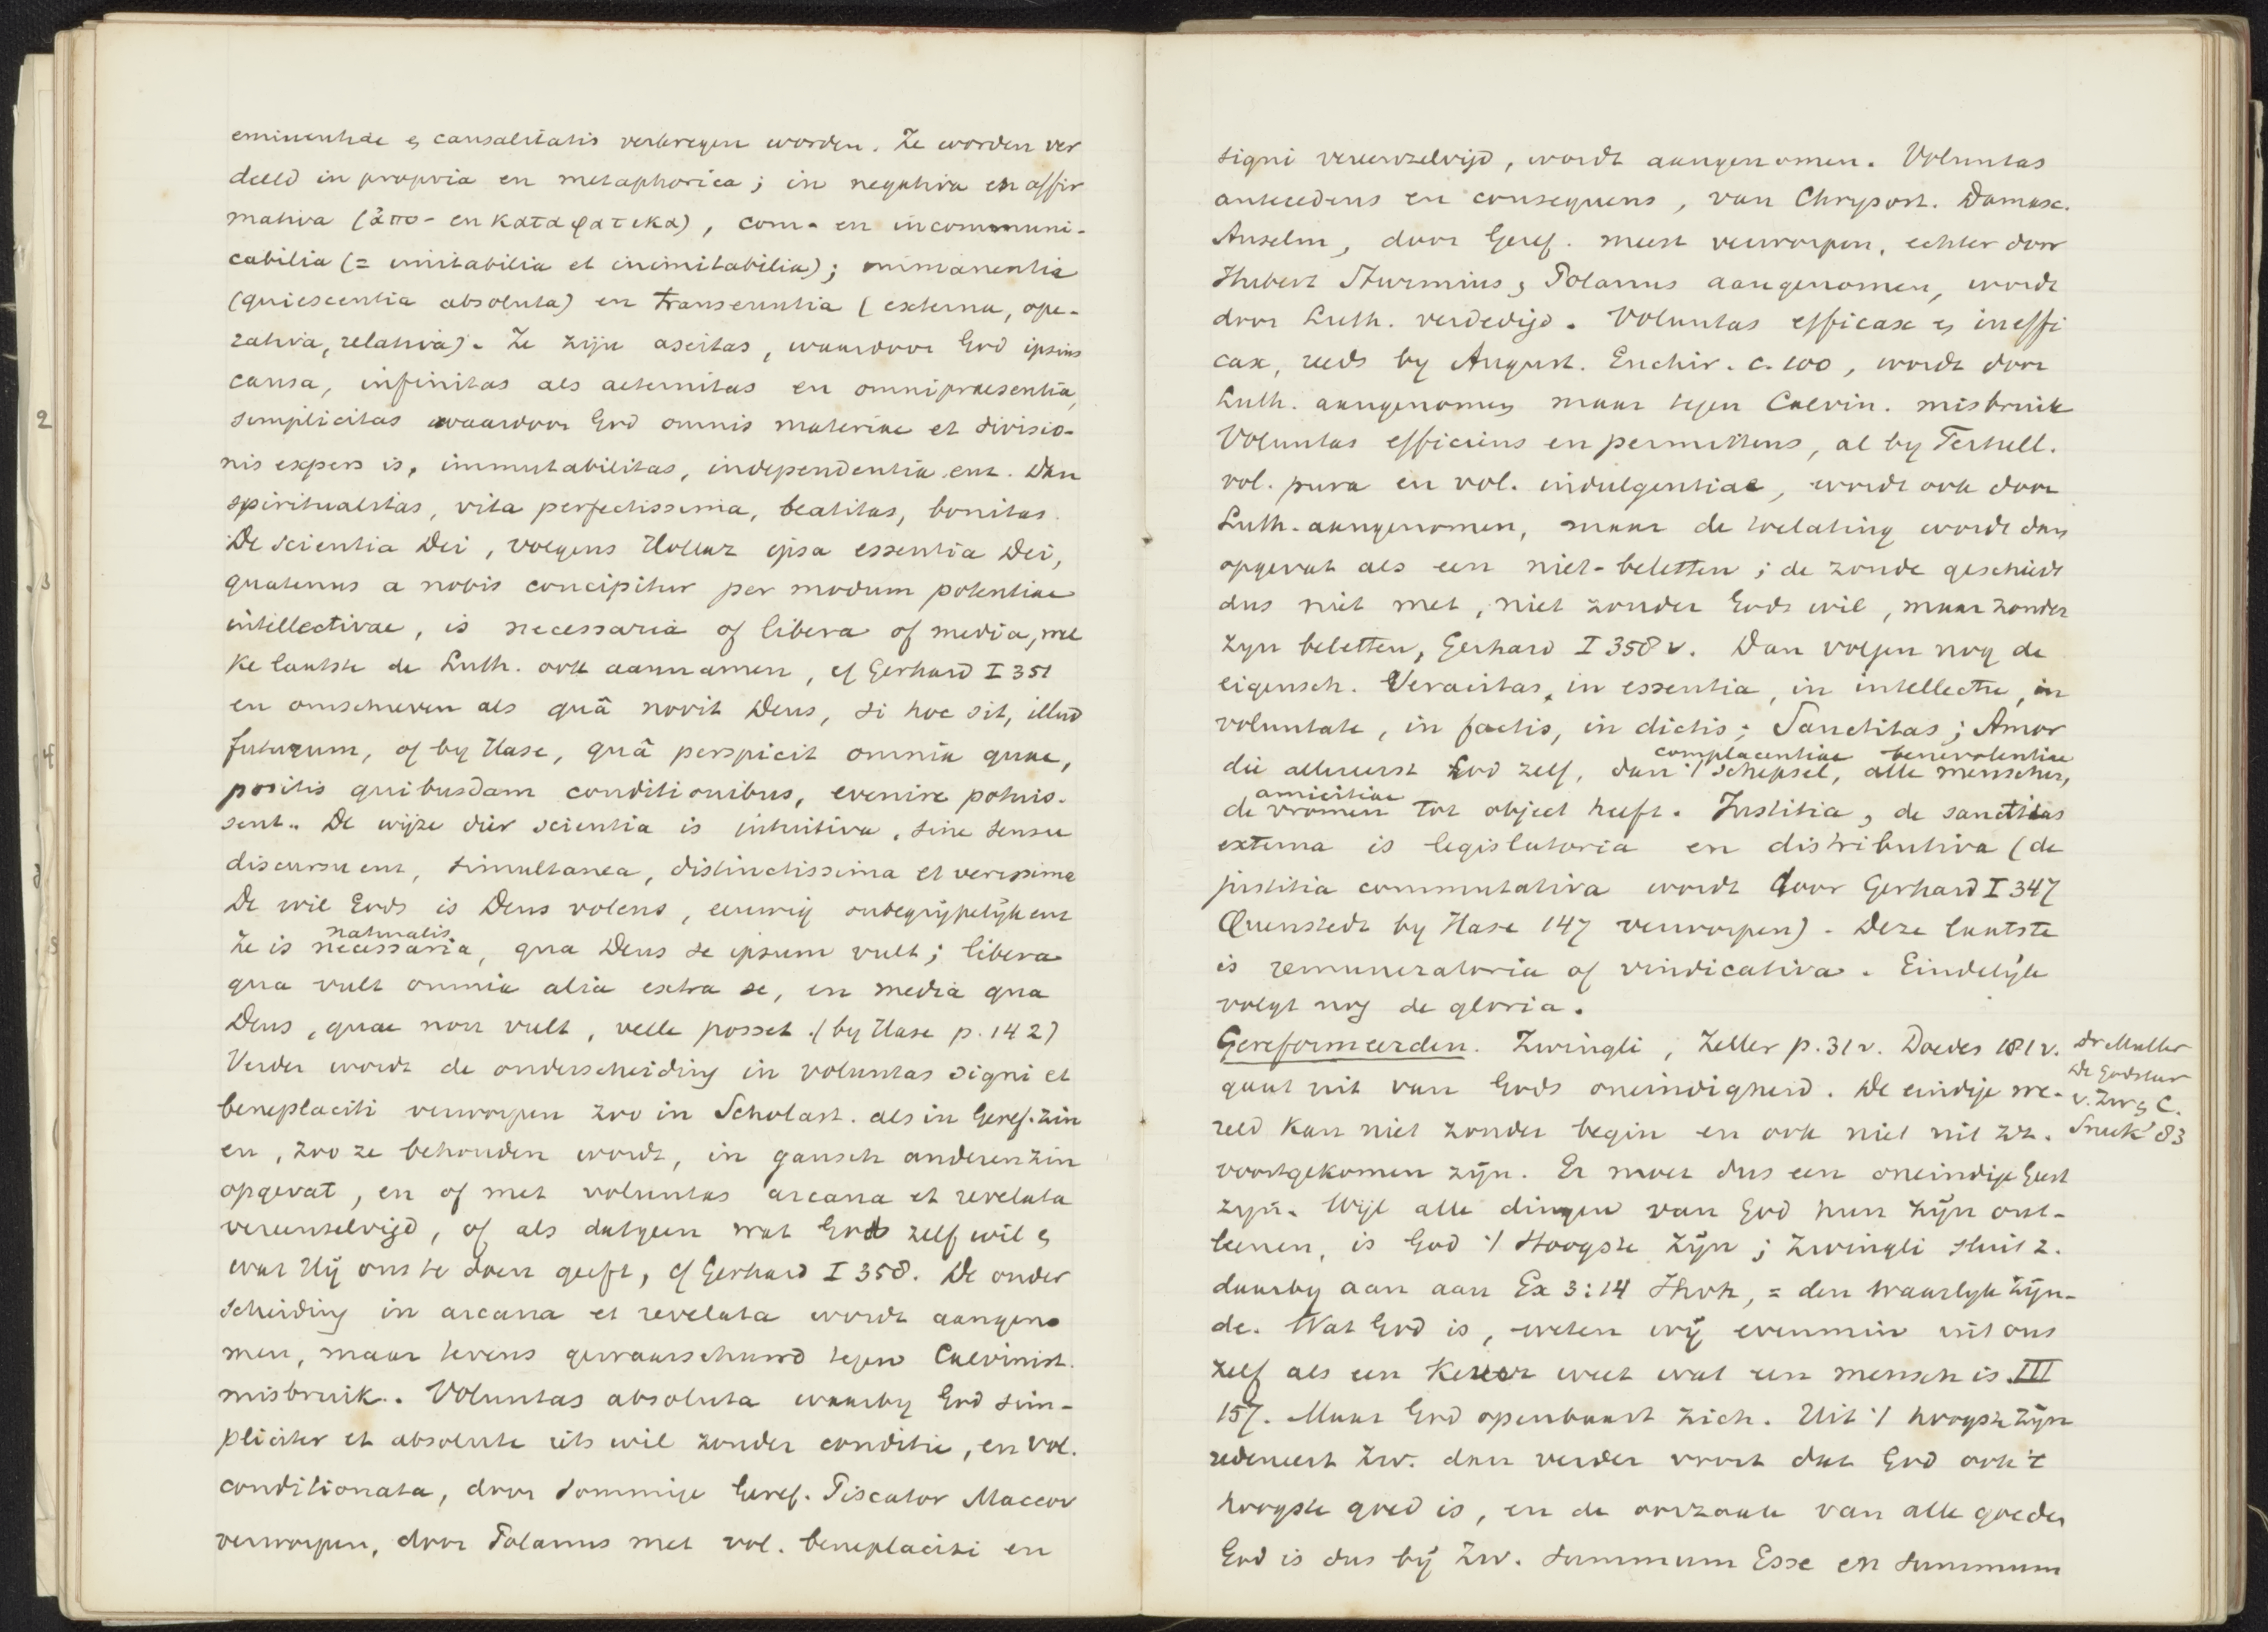 eminentiae & causalitatis verkregen worden. Ze worden ver
deeld in propria en metaphorica; in negativa en affir
mativa (ἀπο- en καταφατικα), com- en incommuni-
cabilia (= imitabilia et inimitabilia); immanentia
(quiescentia absoluta) en transeuntia (externa, ope-
rativa, relativa). Ze zijn aseitas, waardoor God ipsius
causa, infinitas als aeternitas en omnipraesentia,
simplicitas waardoor God omnis materiae et divisio-
nis expers is, immutabilitas, independentia enz. Dan
spiritualitas, vita perfectissima, beatitas, bonitas.
De scientia Dei, volgens Hollaz ipsa essentia Dei,
quatenus a nobis concipitur per modum potentiae
intellectivae, is necessaria of libera of media, wel
ke laatste de Luth. ook aannamen, cf Gerhard I 351
en omschreven als quâ novit Deus, si hoc sit, illud
futurum, of by Hase, quâ perspicit omnia quae,
positis quibusdam conditionibus, evenire potuis-
sent. De wijze dier scientia is intuitiva, sine sensu
discursu enz, simultanea, distinctissima et verissima
De wil Gods is Deus volens, eeuwig onbegrijpelijk enz
naturalis
Ze is necessaria, qua Deus se ipsum vult; libera
qua vult omnia alia extra se, en media qua
Deus, quae non vult, velle posset. (by Hase p. 142)
Verder wordt de onderscheiding in voluntas signi et
beneplaciti verworpen zoo in Scholast. als in Geref. zin
en, zoo ze behouden wordt, in gansch anderen zin
opgevat, en of met voluntas arcana et revelata
vereenzelvigd, of als datgeen wat God zelf wil &
wat Hij ons te doen geeft, cf Gerhard I 358. De onder
scheiding in arcana et revelata wordt aangeno
men, maar tevens gewaarschuwd tegen Calvinist.
misbruik. Voluntas absoluta waarby God sim-
pliciter et absolute iets wil zonder conditie, en vol.
conditionata, door sommige Geref. Piscator Maccov
verworpen, door Polanus met vol. beneplaciti en
signi vereenzelvigd, wordt aangenomen. Voluntas
antecedens en consequens, van Chrysost. Damasc.
Anselm, door Geref. meest verworpen, echter door
Hubert Sturmius, Polanus aangenomen, wordt
door Luth. verdedigd. Voluntas efficax & ineffi
cax, reeds by August. Enchir. c. 100, wordt door
Luth. aangenomen maar tegen Calvin. misbruik
Voluntas efficiens en permittens, al by Tertull.
vol. pura en vol. indulgentiae, wordt ook door
Luth. aangenomen, maar de toelating wordt dan
opgevat als een niet-beletten; de zonde geschiedt
dus niet met, niet zonder Gods wil, maar zonder
zyn beletten, Gerhard I 358 v. Dan volgen nog de
eigensch. Veracitas, in essentia, in intellectu, in
voluntate, in factis, in dictis; Sanctitas; Amor
complacentiae benevolentiae
die allereerst God zelf, dan 't schepsel, alle menschen,
amicitiae
de vromen tot object heeft. Justitia, de sanctitas
externa is legislatoria en distributiva (de
justitia commutativa wordt door Gerhard I 347
Quenstedt by Hase 147 verworpen). Deze laatste
is remuneratoria of vindicativa. Eindelijk
volgt nog de gloria.
Gereformeerden. Zwingli, Zeller p. 31 v. Doedes 181 v.
gaat uit van Gods oneindigheid. De eindige we-
reld kan niet zonder begin en ook niet uit zz.
voortgekomen zijn. Er moet dus een oneindige Geest
zijn. Wijl alle dingen van God hun zijn ont-
leenen, is God 't Hoogste Zijn; Zwingli sluit z.
daarby aan aan Ex 3:14 Jhvh, = den waarlyk zijn-
de. Wat God is, weten wij evenmin uit ons
zelf als een kever weet wat een mensch is. III
157. Maar God openbaart zich. Uit 't hoogste zijn
redeneert Zw. dan verder voort dat God ook 't
hoogste goed is, en de oorzaak van alle goeden
God is dus bij Zw. summum Esse en summum
Dr Muller
De Godsleer
v. Zw & C.
Sneek '83
2
3
4
5